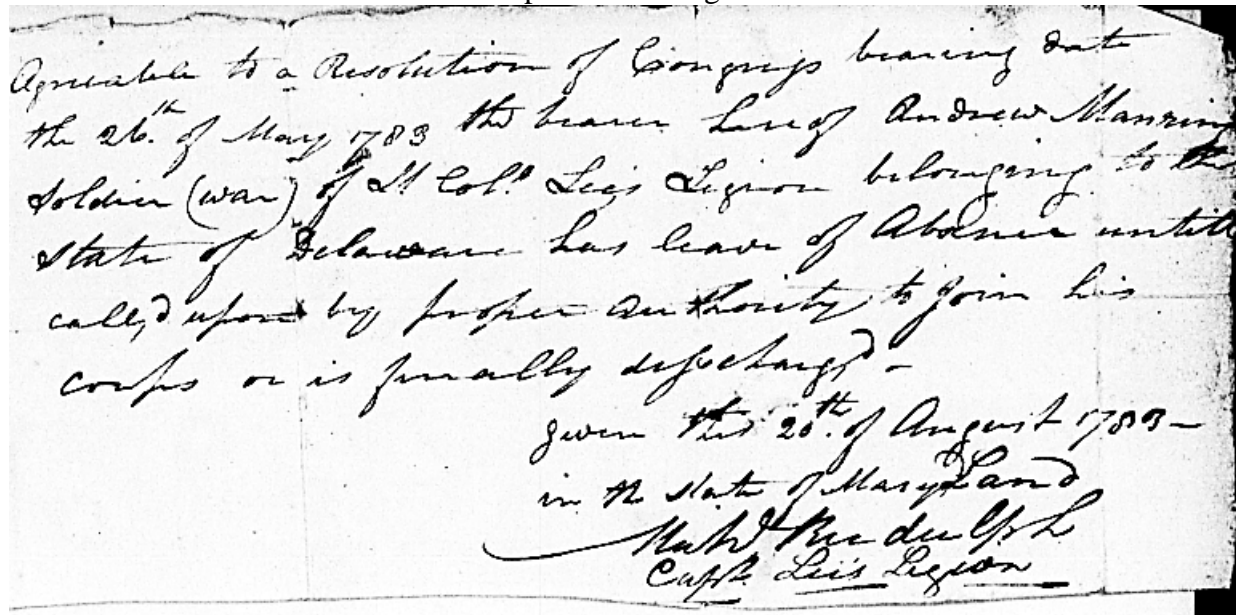 Agreeable to a Resolution of Congress bearing date
the 26.th of May 1783 the bearer hereof Andrew Manning
Soldier (war) of Lt Colo Lee's Legion belonging to the
State of Delaware has leave of Absence untill
call'd upon by proper Authority to Join his
corps or is finally discharg'd -
given this 20.th of August 1783 -
in the state of Mary Land
Rudulph
Capt. Lee's Legion